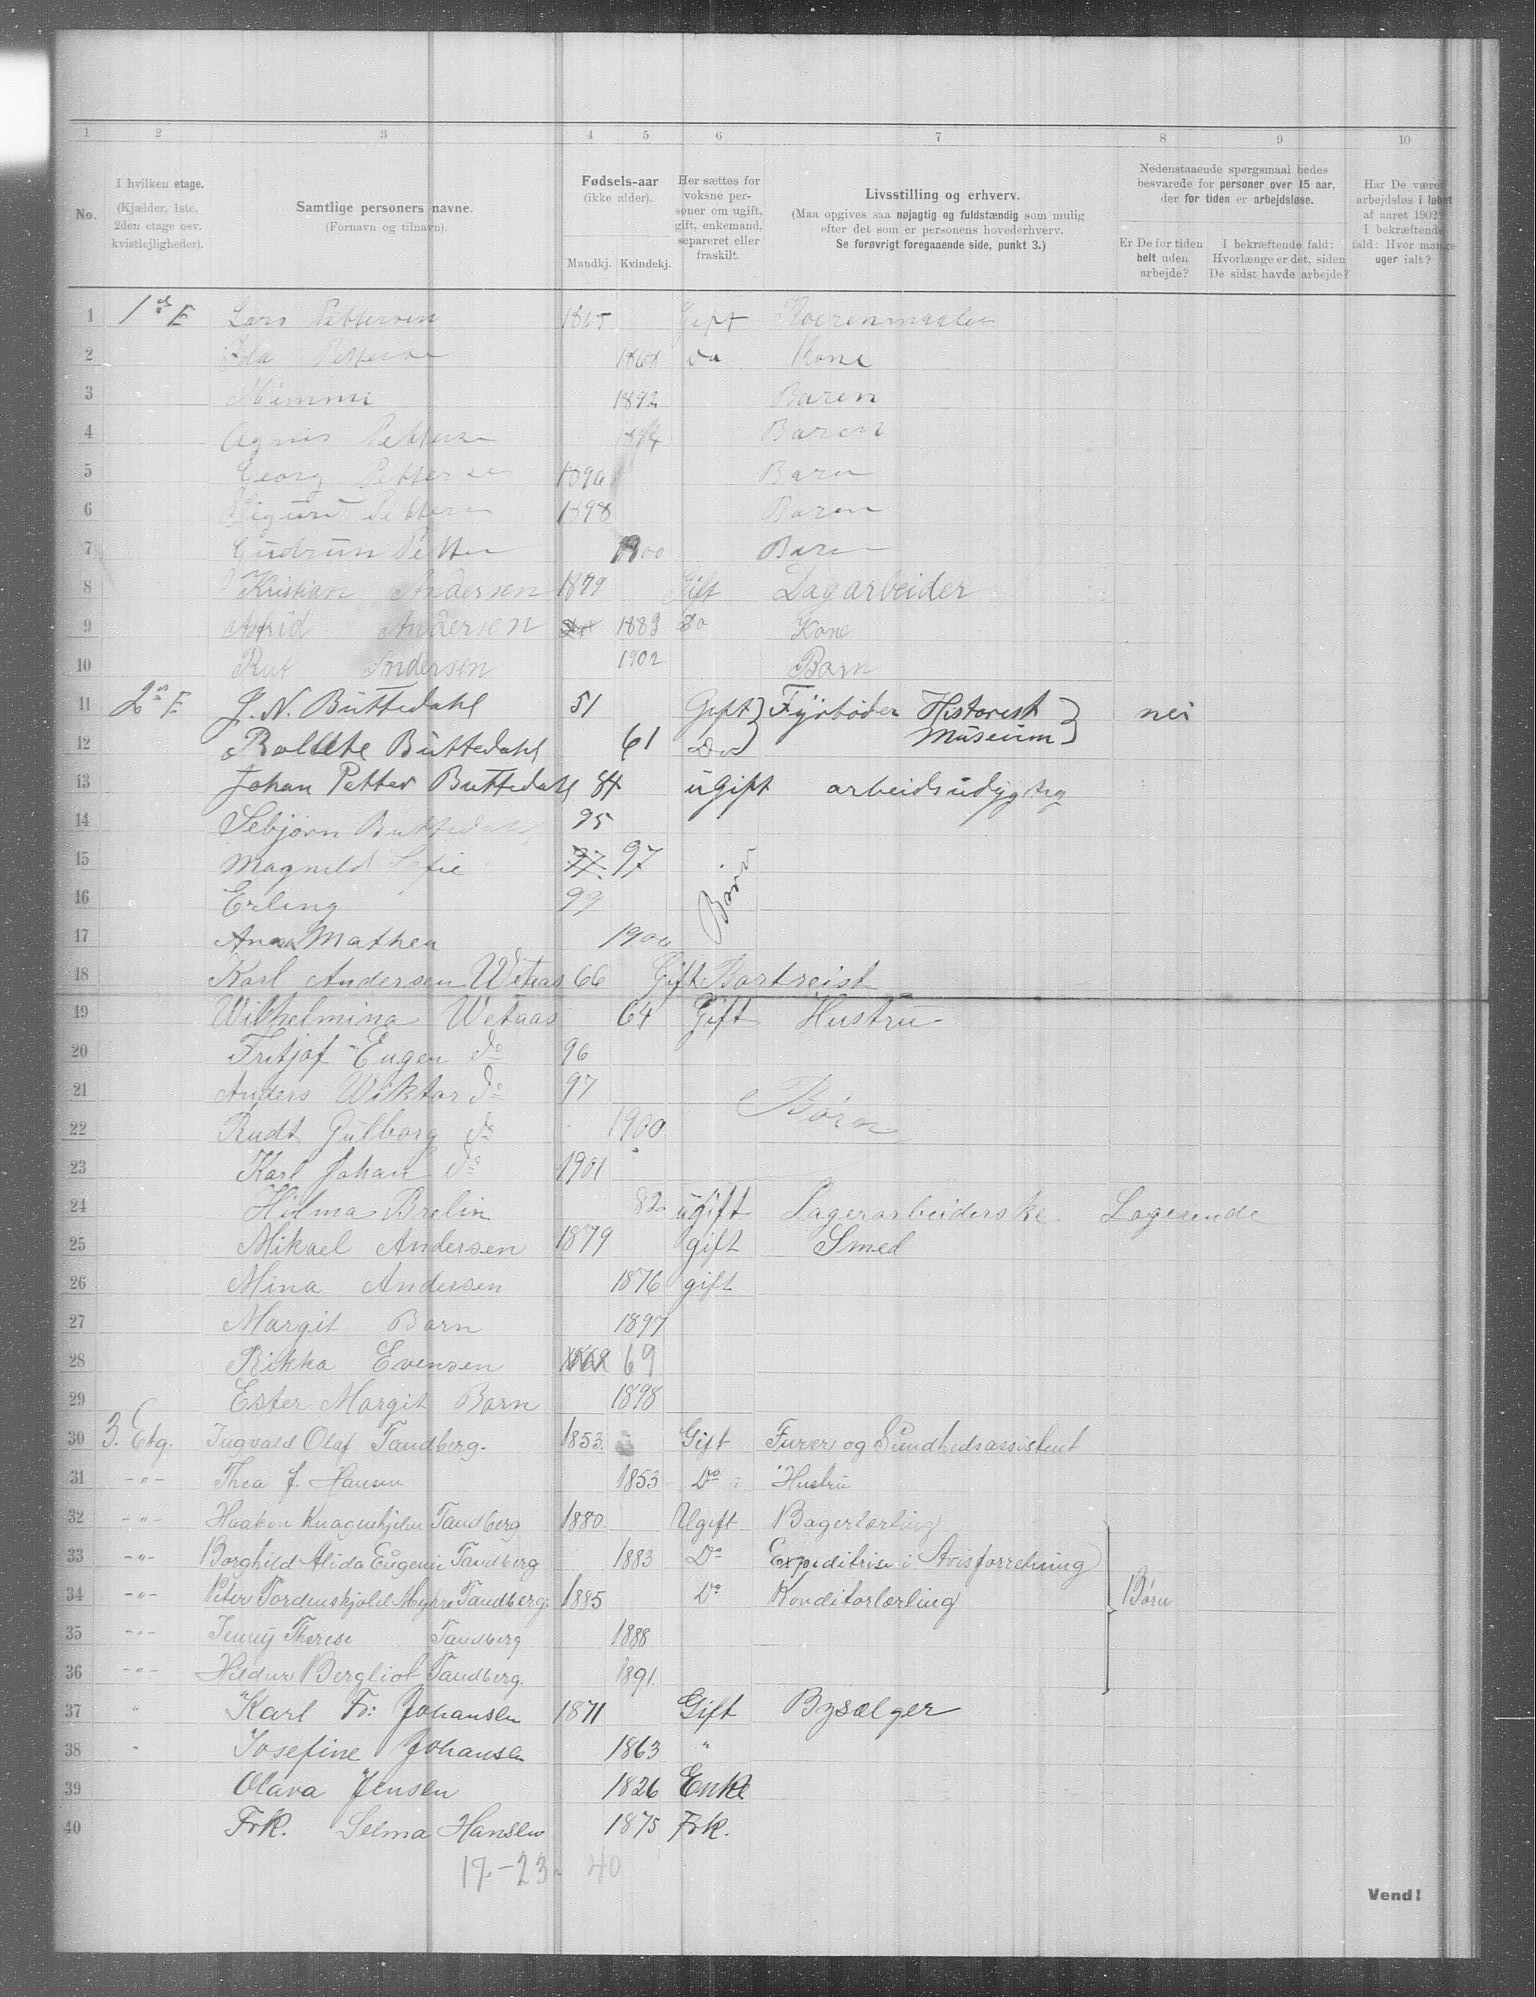 1 2 3 4 5 6 7 8 9 10
No.
I hvilken etage.
(Kjælder, 1ste, 2den etage osv. kvistlejligheder).
Samtlige personers navne.
(Fornavn og tilnavn).
Fødsels-aar
(ikke alder).
Mandkj. Kvindekj.
Her sættes for voksne personer om ugift, gift, enkemand, separeret eller fraskilt.
Livsstilling og erhverv.
(Maa opgives saa nøjagtig og fuldstændig som mulig efter det som er personens hovederhverv.
Se forøvrigt foregaaende side, punkt 3.)
Nedenstaaende spørgsmaal bedes besvarede for personer over 15 aar, der for tiden er arbejdsløse.
Er De for tiden helt uden arbejde?
I bekræftende fald: Hvorlænge er det, siden De sidst havde arbejde?
Har De været arbejdsløs i løbet af aaret 1902? I bekræftende fald: Hvor mange uger ialt?
1 1ste E Lars Pettersen 1865 Gift
2 Ida Petterse Do Kone
3 Mimmi 1892 Baren
4 Agnis Petterse 1894 Baren
5 Georg Petterse 1896 Baren
6 Sigurd Petterse 1898 Baren
7 Gudrun Pette 1900 Baren
8 Kristian Andersen 1879 Gift Dagarbeider
9 Astrid Andersen 1883 Do Kone
10 Rut Andersen 1902 Barn
11 2n E J. N. Buttedahl 51 Gift Fyrbøder Historisk nei
12 Bollete Buttedahl 61 Do Museium
13 Johan Petter Buttedahl 84 ugift arbeidsudygtig
14 Sebjørn Buttedahl 95
15 Magnild Sofie 97 97
16 Erling 99 Børn
17 Anna Mathea 1900
18 Karl Andersen Wetaas 66 Gift Bortreist
19 Wilhelmina Wetaas 64 Gift Hustru
20 Fritjof Eugen do 96
21 Anders Wiktor do 97 Børn
22 Rudt Gulborg do 1900
23 Karl Johan do 1901
24 Hilma Brelin 82 ugift Lagerarbeiderske Logerende
25 Mikael Andersen 1879 gift Smed
26 Mina Andersen 1876 gift
27 Margit Barn 1897
28 Rikka Evensen 69
29 Ester Margit Barn 1898
30 3. Etg. Ingvald Olaf Tandberg. 1853 Gift Furer og Sundhedsassistent
31 -"- Thea J. Hansen 1853 Do Hustru
32 -"- Haakon Knagenhjelm Tandberg 1880 Ugift Bagerlærling
33 -"- Borghild Alida Eugenie Tandberg 1883 Do Expeditrise i Avisforretning
34 -"- Peter Tordenskjold Myhre Tandberg. 1885 Do Konditorlærling Børn
35 -"- Jenny Therese Tandberg 1888
36 -"- Hildur Bergliot Tandberg. 1891.
37 " Karl Fr: Johansen 1871 Gift Bysælger
38 " Josefine Johansen 1863 "
39 Olava Jensen 1826 Enke
40 Frk. Selma Hansen 1875 Frk.
17-23- 40
Vend!